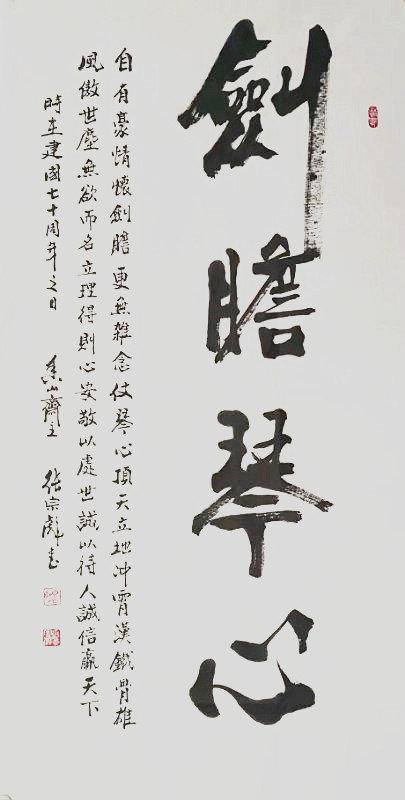 劍瞻琴心
自有豪情懷劍瞻更無雜念仗琴心頂天立地沖霄漢鐵骨雄
風傲世塵無欲而名立理得則心安敬以處世誠以待人誠信贏天下
時在建國七十周年之日 齋主 張宗彪書